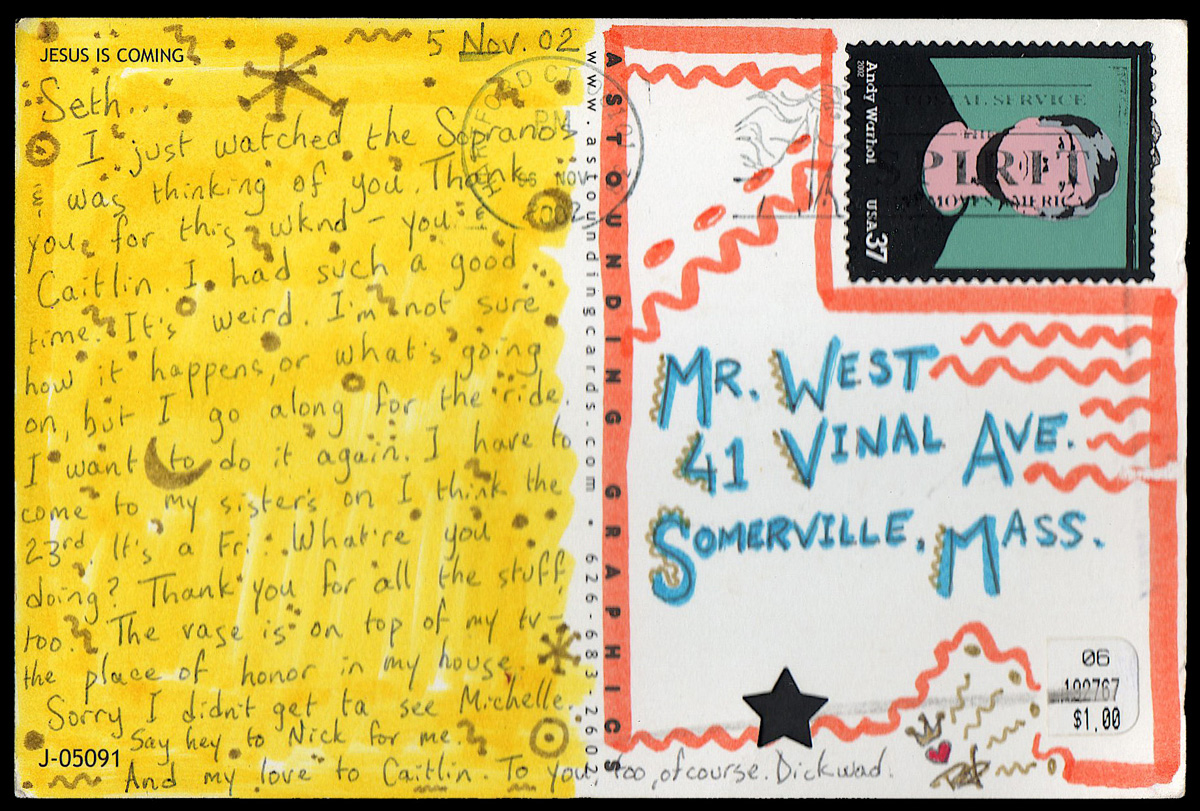 JESUS IS COMING
5 Nov. 02
Seth....
I just watched the Sopranos
& was thinking of you. Thank
you for this wknd - you &
Caitlin. I had such a good
time. It's weird. I'm not sure
how it happens, or what's going
on, but I go along for the ride.
I want to do it again. I have to
come to my sister's on I think the
23rd. It's a Fri. What're you
doing? Thank you for all the stuff
too. The vase is on top of my tv-
the place of honor in my house.
Sorry I didn't get ta see Michelle.
Say hey to Nick for me.
And my love to Caitlin. To you too, of course. Dickwad.
J-05091
HARTFORD CT
PM
NOV
2002
www.astoundingcards.com • 626-683-2602
ASTOUNDING GRAPHICS
POSTAL SERVICE
THE
SPIRIT
MOVES AMERICA
Andy Warhol
2002
USA 37
MR. WEST
41 VINAL AVE.
SOMERVILLE, MASS.
06
102767
$1.00